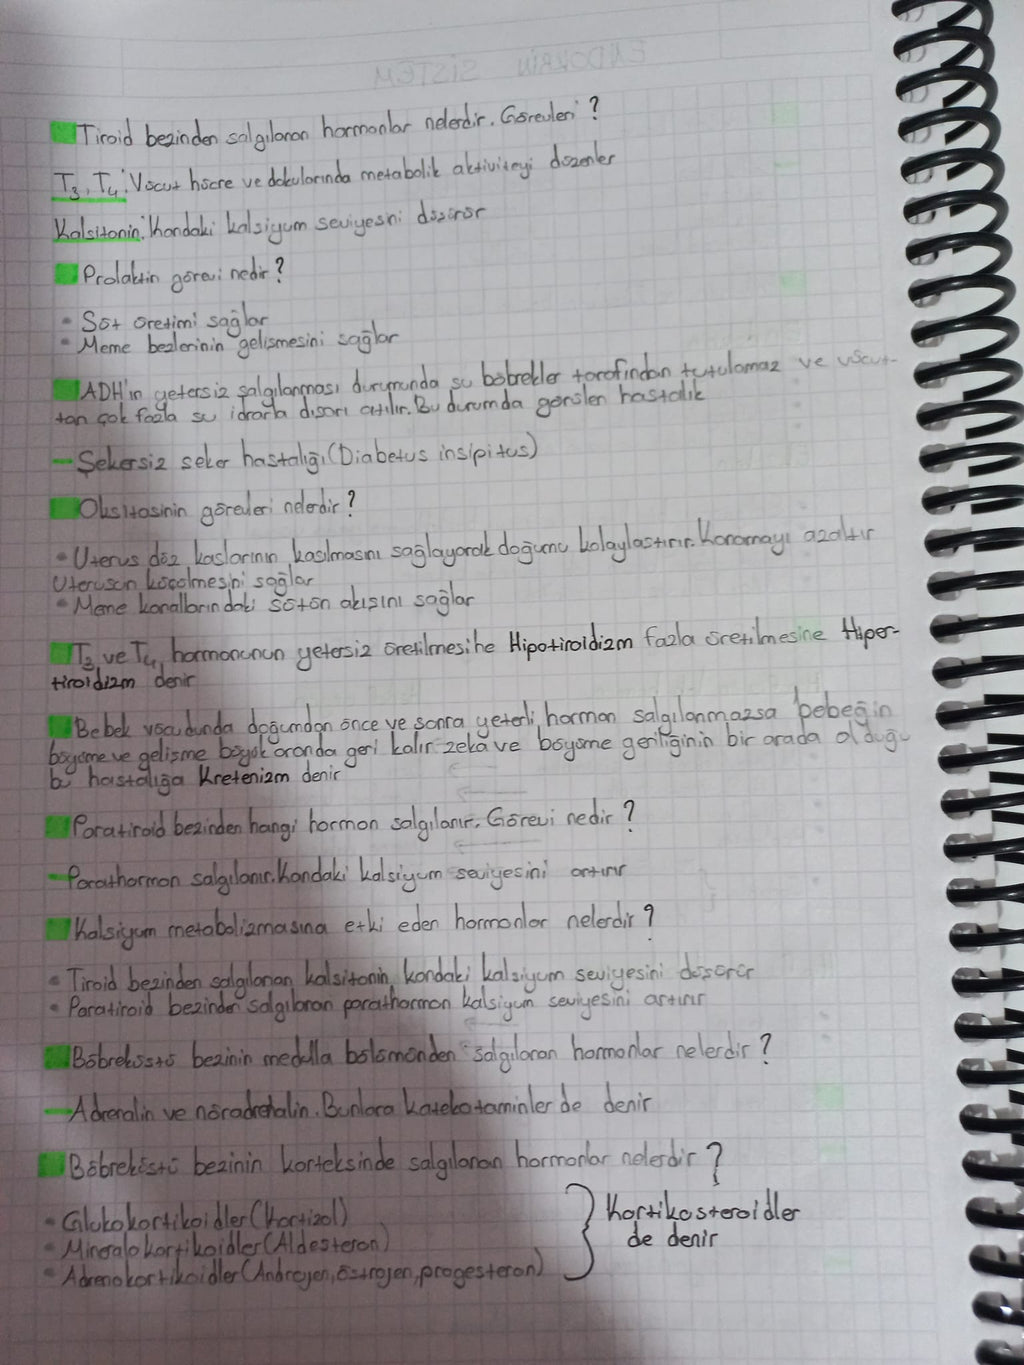 Tiroid bezinden salgılanan hormonlar nelerdir. Görevleri ?
T3, T4: Vücut hücre ve dokularında metabolik aktiviteyi düzenler
Kalsitonin: Kandaki kalsiyum seviyesini düşürür
Prolaktin görevi nedir?
• Süt üretimi sağlar
• Meme bezlerinin gelişmesini sağlar
ADH'ın yetersiz salgılanması durumunda su böbrekler tarafından tutulamaz ve vücut-
tan çok fazla su idrarla dışarı atılır. Bu durumda görülen hastalık
– Şekersiz şeker hastalığı (Diabetus insipitus)
Oksitosinin görevleri nelerdir?
• Uterus düz kaslarının kasılmasını sağlayarak doğumu kolaylaştırır. Kanamayı azaltır
Uterusun küçülmesini sağlar
• Meme kanallarındaki sütün akışını sağlar
T3 ve T4 hormonunun yetersiz üretilmesine Hipotiroidizm fazla üretilmesine Hiper-
tiroidizm denir
Bebek vücudunda doğumdan önce ve sonra yeterli hormon salgılanmazsa bebeğin
büyüme ve gelişme büyük oranda geri kalır. zeka ve büyüme geriliğinin bir arada olduğu
bu hastalığa Kretenizm denir
Paratiroid bezinden hangi hormon salgılanır. Görevi nedir ?
– Parathormon salgılanır. Kandaki kalsiyum seviyesini artırır
Kalsiyum metabolizmasına etki eden hormonlar nelerdir ?
• Tiroid bezinden salgılanan kalsitonin kandaki kalsiyum seviyesini düşürür
• Paratiroid bezinden salgılanan parathormon kalsiyum seviyesini artırır
Böbreküstü bezinin medulla bölümünden salgılanan hormonlar nelerdir ?
– Adrenalin ve nöradrenalin. Bunlara katekotaminler de denir
Böbreküstü bezinin korteksinde salgılanan hormonlar nelerdir ?
• Glukokortikoidler (Kortizol)
• Mineralokortikoidler (Aldesteron)
• Adrenokortikoidler (Androjen, östrojen, progesteron)
} Kortikosteroidler
de denir